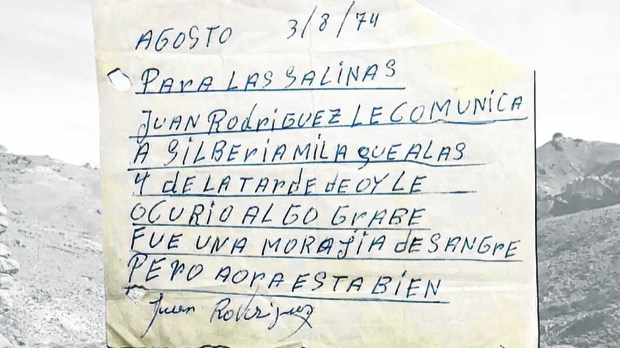 AGOSTO 3/8/74
PARA LAS SALINAS
JUAN RodRIGUEZ LE COMUNICA
A GILBERIA MILA QUE ALAS
4 dE LA TARdE dE OY LE
OCURIO ALGO GRABE
FUE UNA MORAJIA dE SANGRE
PERO AORA ESTA BIEN
Juan Rodriguez